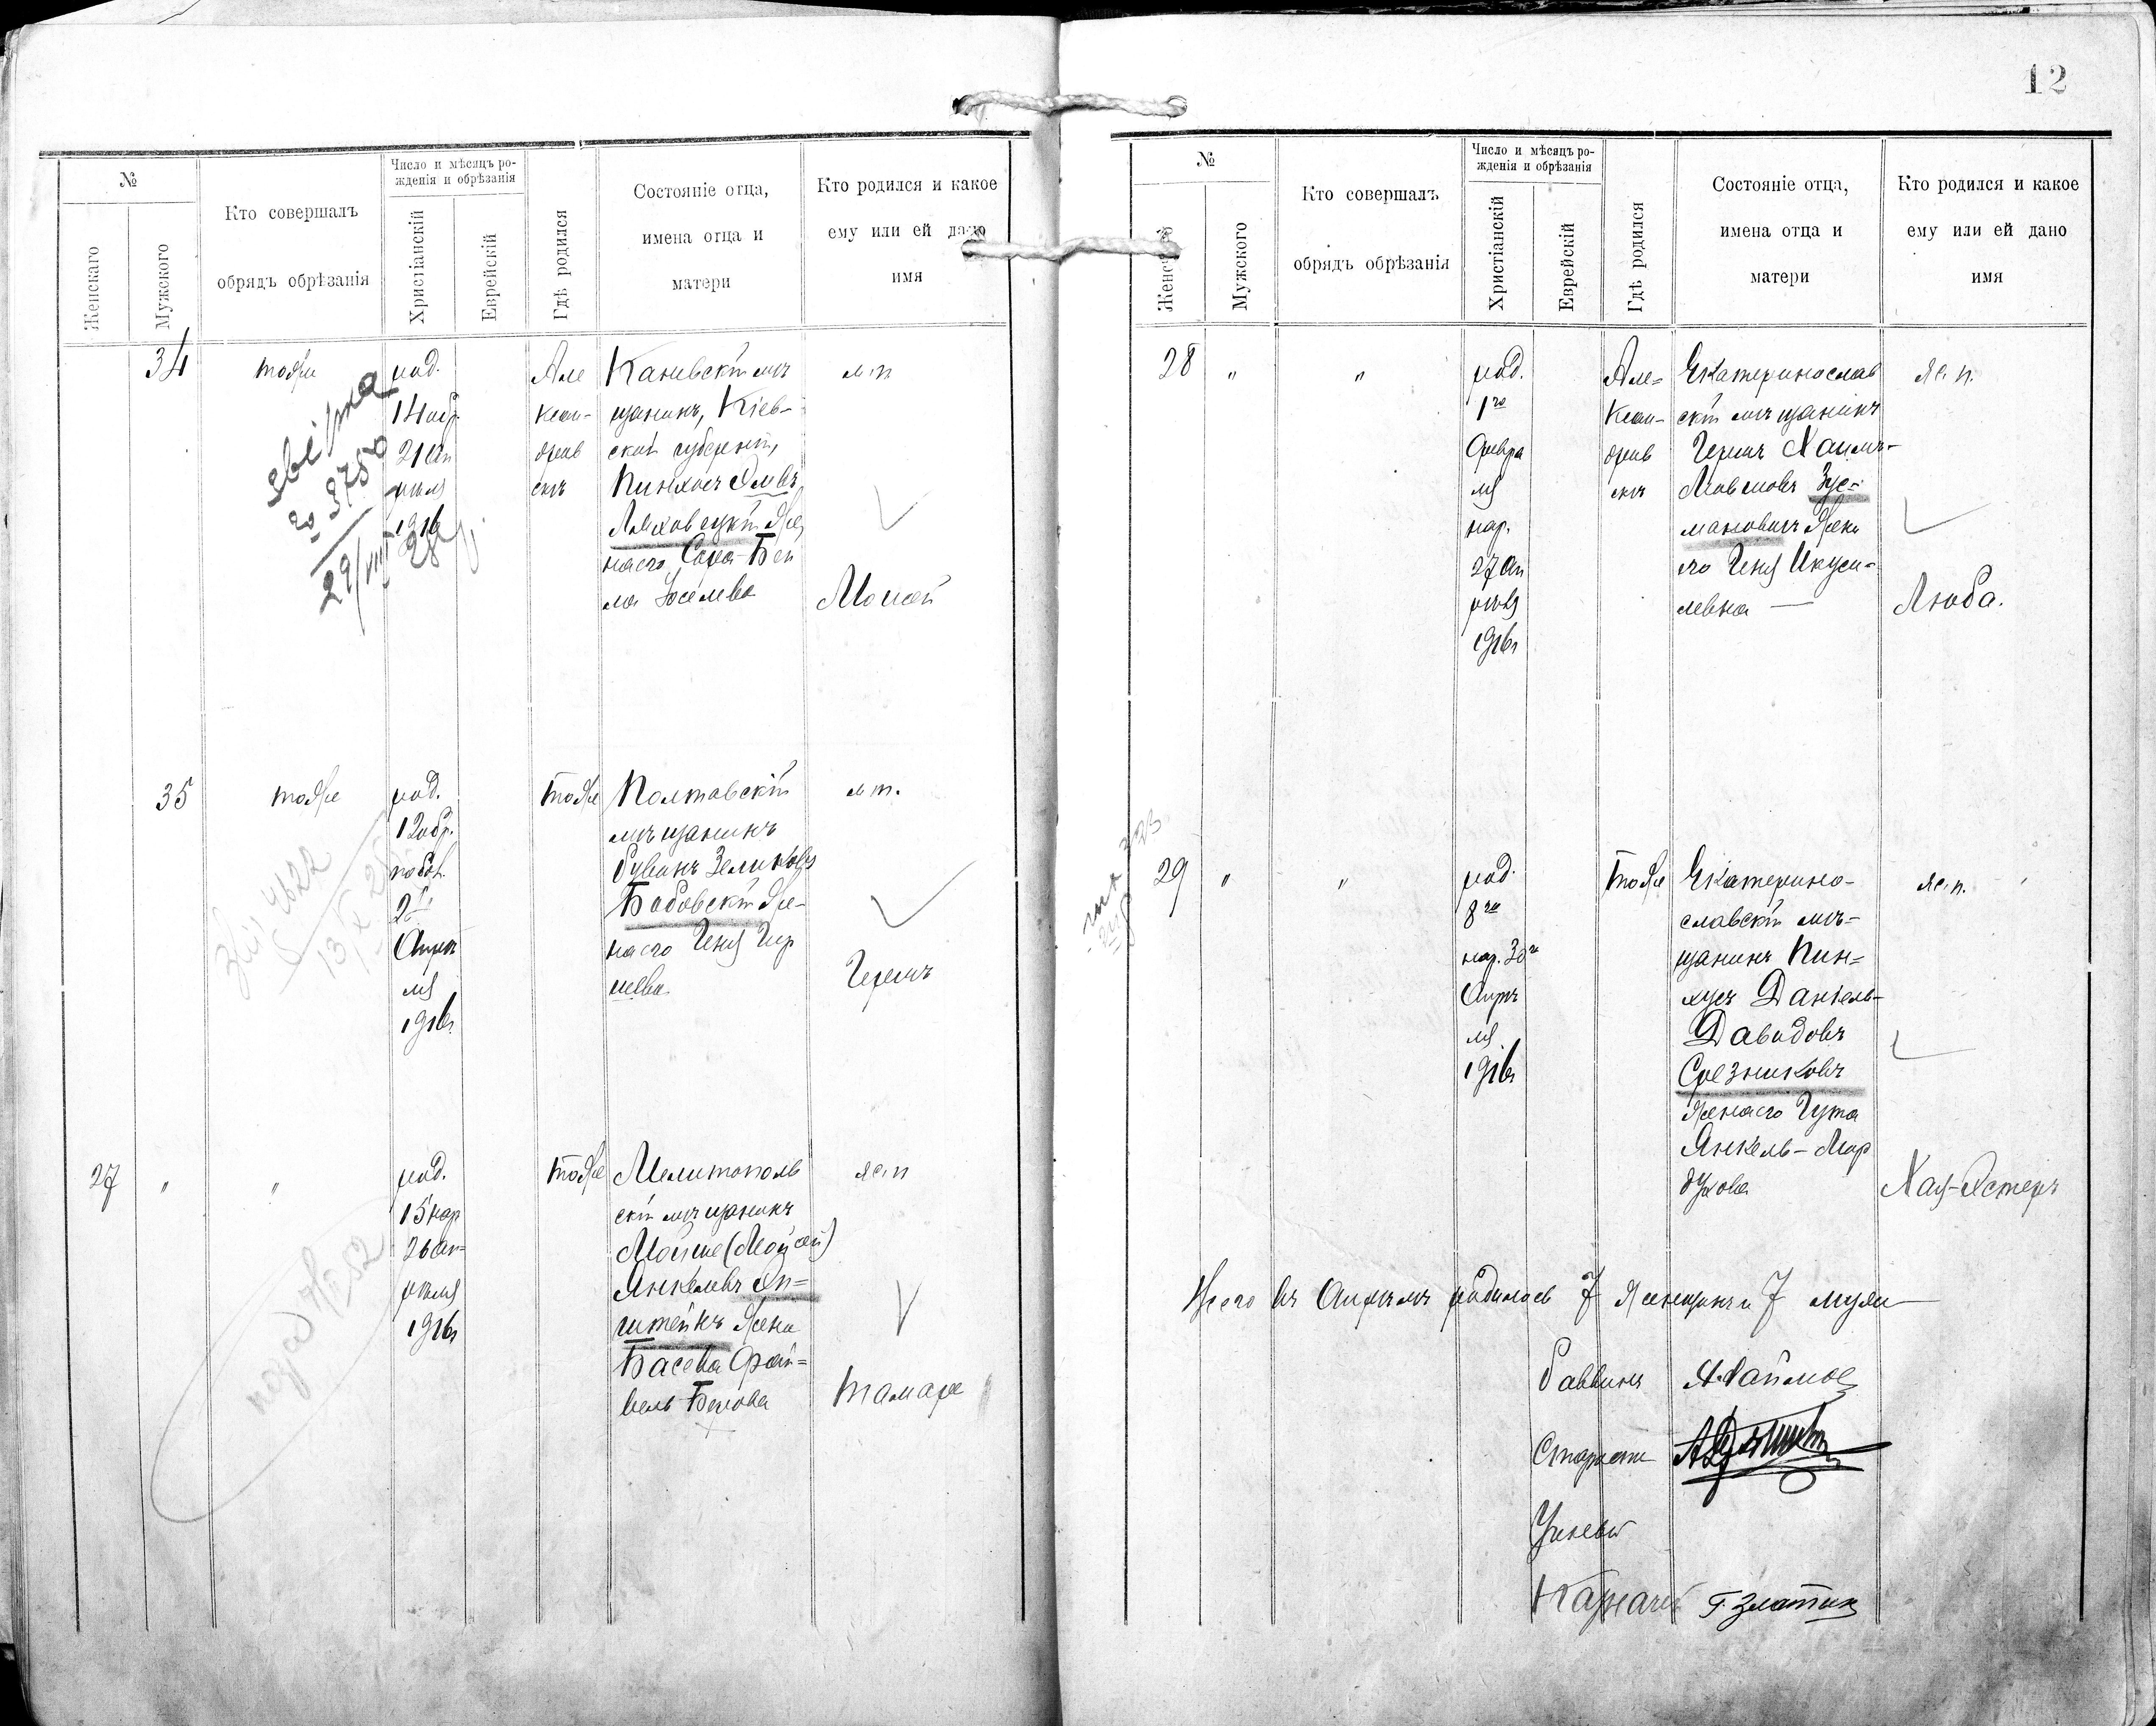 12
№
Женскаго
Мужского
Кто совершалъ
обрядъ обрѣзанія
Число и мѣсяцъ ро-
жденія и обрѣзанія
Христіанскій
Еврейскій
Гдѣ родился
Состояніе отца,
имена отца и
матери
Кто родился и какое
ему или ей дано
имя
34
тояже
род.
14 обр.
21 Ап
рѣля
1916
Але
ксан-
дров
скъ
Каневскій мѣ
щанинъ, Кіев-
ской губерніи,
Пинхосъ
Ляховецкій же
на его Сара-Бей
ла Іоселева
м.п
Моисей
3750
29/VIII
35
тояже
род.
12 обр.
Апрѣ
ля
1916
тояже
Полтавскій
мѣщанинъ
Рувинъ Зеликовъ
Бабовскій же-
на его Геня Гир
шева
м п.
Гершъ
4622
27
"
"
род.
15 нар
26 Ап=
рѣля
1916
тояже
Мелитополь
скій мѣщанинъ
Мойше (Мойсей)
Янкелевъ Эп=
штейнъ жена
Басева Фрай=
вель-Беркова
ж.п
Тамара
№
Мужского
Кто совершалъ
обрядъ обрѣзанія
Число и мѣсяцъ ро-
жденія и обрѣзанія
Христіанскій
Еврейскій
Гдѣ родился
Состояніе отца,
имена отца и
матери
Кто родился и какое
ему или ей дано
имя
28
"
"
род.
1го
Февра
ля
нар.
27 Ап
рѣля
1916
Але=
ксан-
дров
скъ
Екатеринослав
скій мѣщанинъ
Гершъ Хаимъ-
Лейбовъ Зус=
мановичъ жена
его Геня Икуси-
левна —
ж.п.
Люба.
29
"
"
род.
8го
нар. 30го
Апрѣ
ля
1916
тояже
Екатерино-
славскій мѣ-
щанинъ Пин=
хусъ Даніель-
Давидовъ
Срезниковъ
жена его Гута
Янкель-Мор
духова
ж.п.
Хая-Эстеръ
Всего въ Апрѣлѣ родилось 7 женщинъ и 7 мужч
Раввинъ
Староста
Ученый
Казначей Г. Златкин